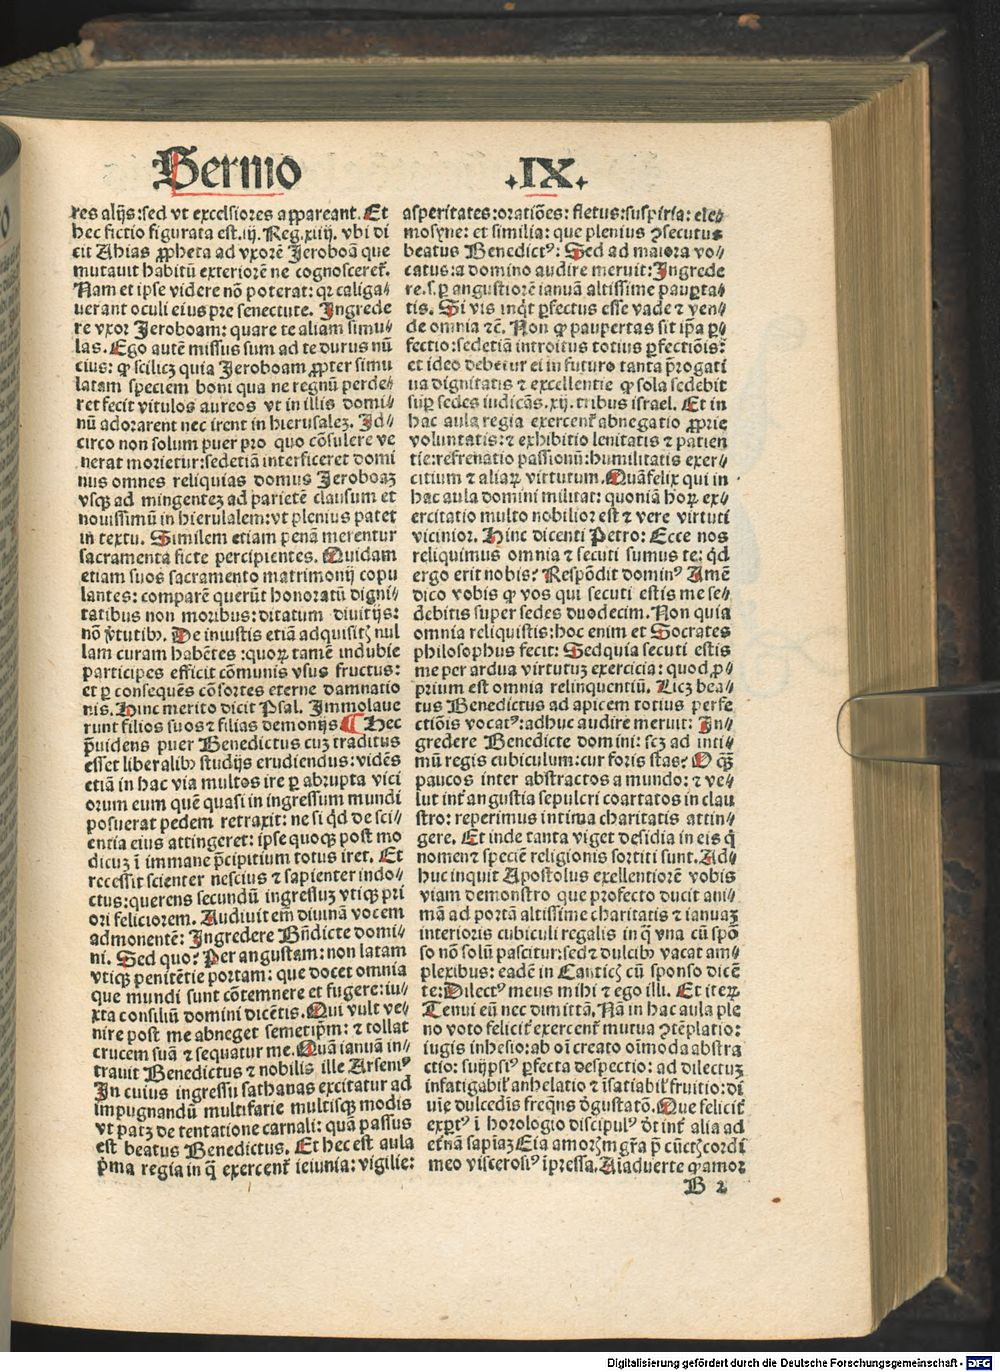 Sermo
.IX.
res alijs:sed vt excelsiores appareant. Et
hec fictio figurata est.iij. Reg.xiiij. vbi di
cit Ahias ꝓpheta ad vxorē Jeroboā que
mutauit habitū exteriorē ne cognosceret᷑.
Nam et ipse videre nō poterat: qꝛ caliga⸗
uerant oculi eius pre senectute. Ingrede
re vxor Jeroboam: quare te aliam simu⸗
las. Ego autē missus sum ad te durus nū
cius: ꝙ scilicꝫ quia Jeroboam ꝓpter simu
latam speciem boni qua ne regnū perde⸗
ret fecit vitulos aureos vt in illis domi⸗
nū adorarent nec irent in hierusaleꝫ. Id⸗
circo non solum puer pro quo cōsulere ve
nerat morietur:sedetiā interficeret domi
nus omnes reliquias domus Jeroboaꝫ
vsqꝫ ad mingenteꝫ ad parietē clausum et
nouissimū in hierusalem:vt plenius patet
in textu. Similem etiam penā merentur
sacramenta ficte percipientes. Quidam
etiam suos sacramento matrimonij copu
lantes: comparē querūt honoratū digni⸗
tatibus non moribus: ditatum diuitijs:
nō v̄tutibꝰ. De iniustis etiā adquisitꝭ nul
lam curam habētes :quoꝝ tamē indubie
participes efficit cōmunis vsus fructus:
et ꝑ consequēs cōsortes eterne damnatio
nis. Hinc merito dicit Psal. Immolaue
runt filios suos ⁊ filias demonijs ¶ Hec
p̄uidens puer Benedictus cuꝫ traditus
esset liberalibꝰ studijs erudiendus: vidēs
etiā in hac via multos ire ꝑ abrupta vici
orum eum quē quasi in ingressum mundi
posuerat pedem retraxit: ne si qd̓ de sci⸗
entia eius attingeret: ipse quoqꝫ post mo
dicuꝫ ī immane p̄cipitium totus iret. Et
recessit scienter nescius ⁊ sapienter indo⸗
ctus: querens secundū ingressuꝫ vtiqꝫ pri
ori feliciorem. Audiuit em̄ diuinā vocem
admonentē: Ingredere Bn̄dicte domi⸗
ni. Sed quo? Per angustam: non latam
vtiqꝫ penitētie portam: que docet omnia
que mundi sunt cōtemnere et fugere: iu⸗
xta consiliū domini dicētis. Qui vult ve⸗
nire post me abneget semetip̄m: ⁊ tollat
crucem suā ⁊ sequatur me. Quā ianuā in⸗
trauit Benedictus ⁊ nobilis ille Arseniꝰ
In cuius ingressu sathanas excitatur ad
impugnandū multifarie multisqꝫ modis
vt patꝫ de tentatione carnali: quā passus
est beatus Benedictus. Et hec est aula
p̄ma regia in q̄ exercent᷑ ieiunia: vigilie:
asperitates: oratiōes: fletus: suspiria: ele⸗
mosyne: et similia: que plenius ꝯsecutus
beatus Benedictꝰ: Sed ad maiora vo⸗
catus: a domino audire meruit: Ingrede
re.s.ꝑ angustiorē ianuā altissime pauꝑta⸗
tis. Si vis inqͥt ꝑfectus esse vade ⁊ ven⸗
de omnia ⁊c̄. Non ꝙ paupertas sit ip̄a ꝑ⸗
fectio:sedetiā introitus totius ꝑfectiōis:
et ideo debetur ei in futuro tanta p̄rogati
ua dignitatis ⁊ excellentie ꝙ sola sedebit
suꝑ sedes iudicās.xij. tribus israel. Et in
hac aula regia exercent᷑ abnegatio ꝓprie
voluntatis: ⁊ exhibitio lenitatis ⁊ patien
tie:refrenatio passionū:humilitatis exer⸗
citium ⁊ aliaꝝ virtutum. Quāfelix qui in
hac aula domini militat: quoniā hoꝝ ex⸗
ercitatio multo nobilior est ⁊ vere virtuti
vicinior. Hinc dicenti Petro: Ecce nos
reliquimus omnia ⁊ secuti sumus te: qd̓
ergo erit nobis? Respōdit dominꝰ Amē
dico vobis ꝙ vos qui secuti estis me se⸗
debitis super sedes duodecim. Non quia
omnia reliquistis:hoc enim et Socrates
philosophus fecit: Sedquia secuti estis
me per ardua virtutuꝫ exercicia: quod ꝓ⸗
prium est omnia relinquentiū. Licꝫ bea⸗
tus Benedictus ad apicem totius perfe
ctiōis vocatꝰ:adhuc audire meruit: In⸗
gredere Benedicte domini: scꝫ ad inti⸗
mū regis cubiculum:cur foris stas? O qꝫ̄
paucos inter abstractos a mundo: ⁊ ve⸗
lut int̓ angustia sepulcri coartatos in clau
stro: reperimus intima charitatis attin⸗
gere. Et inde tanta viget desidia in eis q̄
nomen ⁊ speciē religionis sortiti sunt. Ad⸗
huc inquit Apostolus exellentiorē vobis
viam demonstro que profecto ducit ani⸗
mā ad portā altissime charitatis ⁊ ianuaꝫ
interioris cubiculi regalis in q̄ vna cū spō
so nō solū pascitur:sed ⁊ dulcibꝰ vacat am⸗
plexibus: eadē in Canticꝭ cū sponso dicē
te: Dilectꝰ meus mihi ⁊ ego illi. Et iteꝝ
Tenui eū nec dimittā. Nā in hac aula ple
no voto felicit̓ exercent᷑ mutua ꝯtēplatio:
iugis inhesio: ab oī creato oīmoda abstra
ctio: suijpsiꝰ ꝑfecta despectio: ad dilectuꝫ
infatigabil̓ anhelatio ⁊ īsatiabil̓ fruitio: di
uie dulcedīs freqn̄s d̓gustatō. Que felicit̓
exꝑtꝰ ī horologio discipulꝰ dt̄ int̓ alia ad
et̓nā sapiaꝫ Eia amorꝭ m̄ gr̄a p̄ cūctꝭ cordi
meo viscerosiꝰ īpressa. Aīaduerte ꝙ amor
B 2
Digitalisierung gefördert durch die Deutsche Forschungsgemeinschaft - DFG